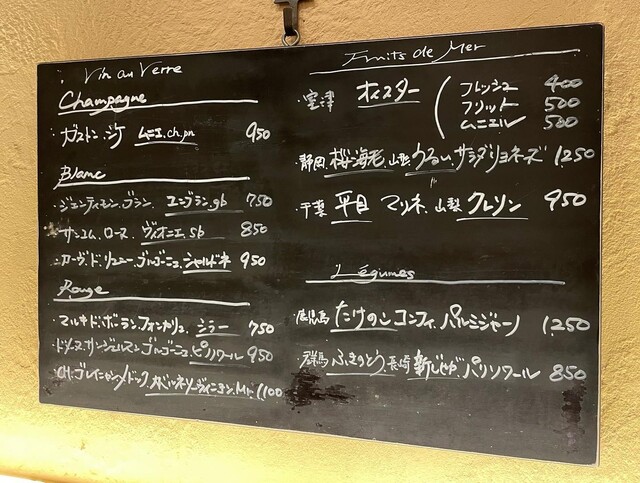 Vin au Verre
Champagne
・ガストン.シケ ムニエ.ch.pn 950
Blanc
・ジェンティモン.ブラン. ユニブラン.gb 750
・サンコム.ローヌ. ヴィオニエ.sb 850
・カーヴ.ド.リュニー.ブルゴーニュ.シャルドネ 950
Rouge
・マルキ.ド.ボーラン. シラー 750
・ドメーヌ.サンジェルマン.ブルゴーニュ.ピノノワール 950
・CH. メドック 1,100
Fruits de Mer
・室津 オイスター
フレッシュ 400
フリット 500
ムニエル 500
・静岡 桜海老. 山梨 うるい. サラダリヨネーズ 1,250
・千葉 平目 マリネ. 山梨 クレソン 950
Légumes
・鹿児島 たけのこ コンフィ. パルミジャーノ 1,250
・群馬 ふきのとう 長崎 新じゃが. パリソワール 850